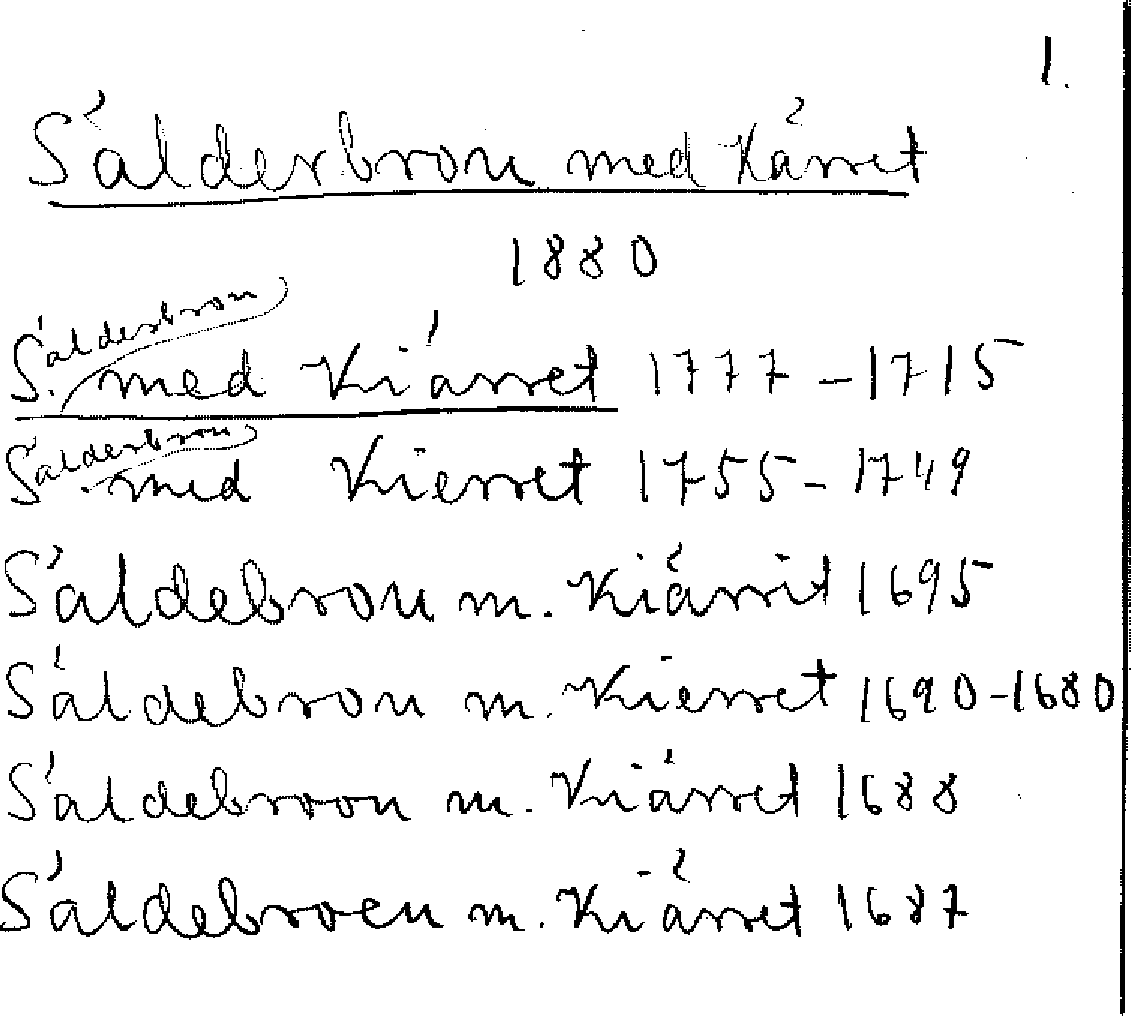 1.
Sälderbron med Kärret
1880
Sälderbron
S. med Kiärret 1777-1715
Sälderbron
S. med Kierret 1755-1749
Säldebron m. Kiärrit 1695
Säldebron m. Kierret 1690-1680
Säldebroon m. Kiärret 1688
Säldebroen m. Kiärret 1687